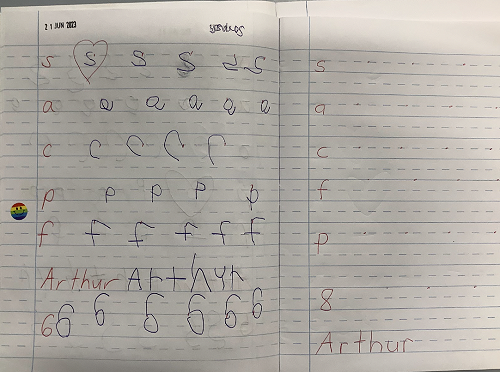 21 JUN 2023
s s s s s s
a a a a a a
c c c c c
p p p p p
f f f f f f
Arthur Arthur
6 6 6 6 6 6 6
s
a
c
f
p
8
Arthur